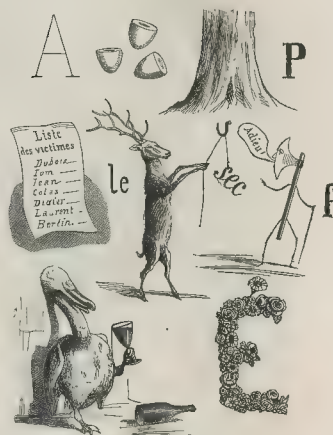 A
P
Liste
des victimes
Dubois
Tom
Jean
Colas
Didier
Laurent
Bertin
le
sec
Adieu!
É